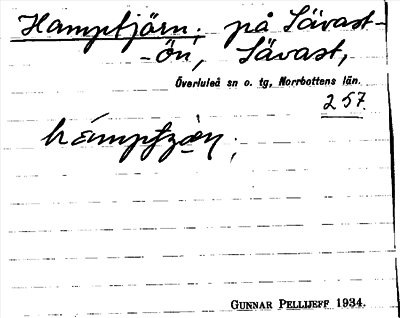 Hamptjärn; på Sävast-
-ön, Sävast,
Överluleå sn o. tg, Norrbottens län.
257
hámptjän;
GUNNAR PELLIJEFF 1934.